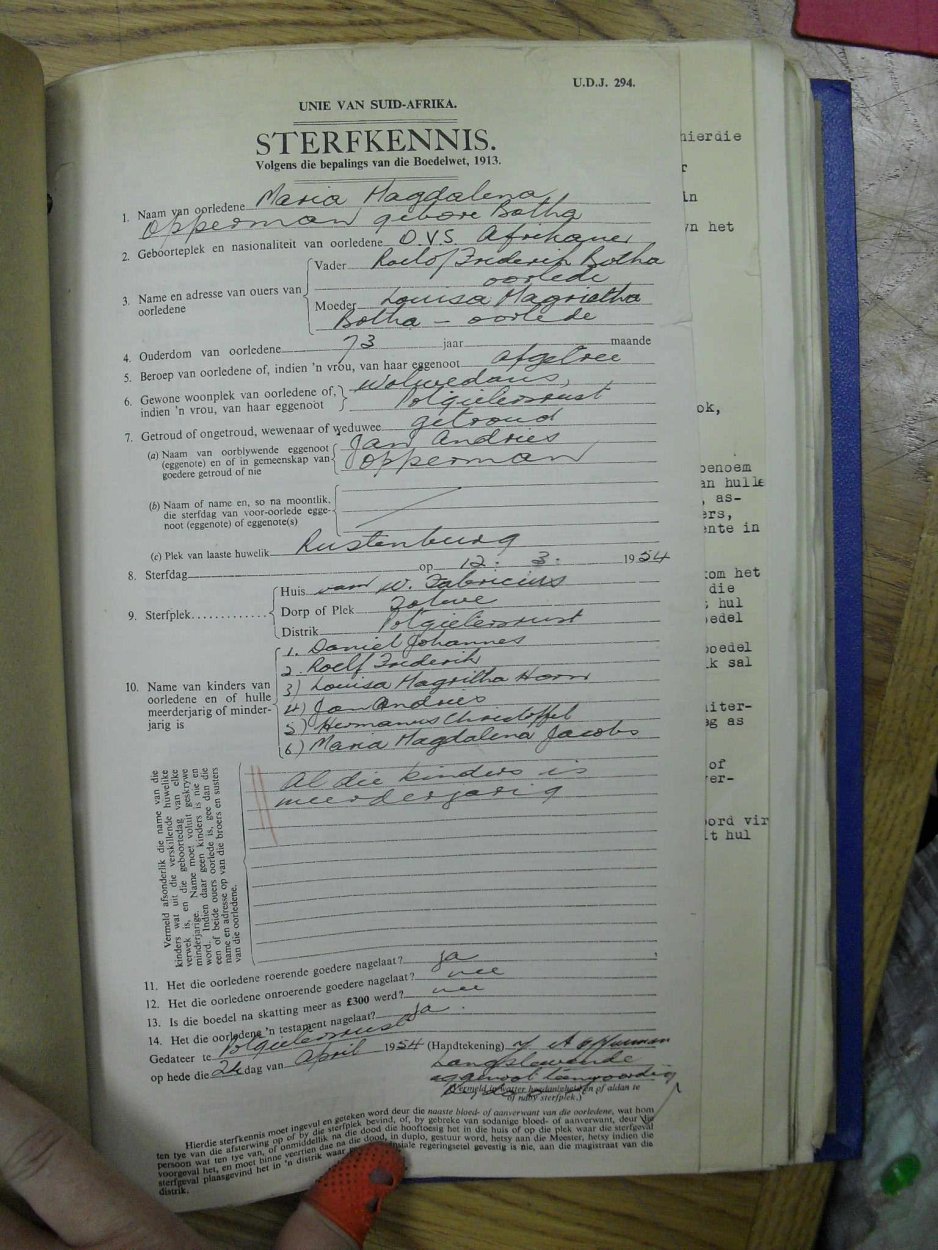 U.D.J. 294.
UNIE VAN SUID-AFRIKA.
STERFKENNIS.
Volgens die bepalings van die Boedelwet, 1913.
1. Naam van oorledene Maria Magdalena
Opperman gebore Botha
2. Geboorteplek en nasionaliteit van oorledene O.V.S. Afrikaner
3. Name en adresse van ouers van oorledene
Vader Roelof Frederik Botha
oorlede
Moeder Louisa Magrietha
Botha — oorlede
4. Ouderdom van oorledene 73 jaar maande
5. Beroep van oorledene of, indien 'n vrou, van haar eggenoot afgetree
6. Gewone woonplek van oorledene of, Wolwedans,
indien 'n vrou, van haar eggenoot Potgietersrust
7. Getroud of ongetroud, wewenaar of weduwee getroud
(a) Naam van oorblywende eggenoot Jan Andries
(eggenote) en of in gemeenskap van Opperman
goedere getroud of nie
(b) Naam of name en, so na moontlik,
die sterfdag van voor-oorlede egge-
noot (eggenote) of eggenote(s)
(c) Plek van laaste huwelik Rustenburg
8. Sterfdag op 12. 3. 1954
9. Sterfplek
Huis van W. Fabricius
Dorp of Plek
Distrik Potgietersrust
10. Name van kinders van
oorledene en of hulle
meerderjarig of minder-
jarig is
1. Daniel Johannes
2. Roelf Frederik
3) Louisa Magritha Horn
4) Jan Andries
5) Hermanus Christoffel
6) Maria Magdalena Jacobs
Al die kinders is
meerderjarig
Vermeld afsonderlik die name van die
kinders wat uit die verskillende huwelike
verwek is, en die geboortedag van elke
minderjarige. Name moet voluit geskrywe
word. Indien daar geen kinders is nie en
een of beide ouers oorlede is, gee dan die
name en adresse op van die broers en susters
van die oorledene.
11. Het die oorledene roerende goedere nagelaat? ja
12. Het die oorledene onroerende goedere nagelaat? nee
13. Is die boedel na skatting meer as £300 werd? nee
14. Het die oorledene 'n testament nagelaat? Ja.
Gedateer te Potgietersrust
op hede die 24 dag van April 1954 (Handtekening)
Langslewende
eggenoot teenwoordig
(Vermeld in watter hoedanigheid en of aldan te
of naby sterfplek.)
Hierdie sterfkennis moet ingevul en geteken word deur die naaste bloed- of aanverwant van die oorledene, wat hom
ten tye van die afsterwing op of by die sterfplek bevind, of, by gebreke van sodanige bloed- of aanverwant, deur die
persoon wat ten tye van, of onmiddellik na die dood die hooftoesig het in die huis of op die plek waar die sterfgeval
voorgeval het, en moet binne veertien dae na die dood, in duplo, gestuur word, hetsy aan die Meester, hetsy indien die
sterfgeval plaasgevind het in 'n distrik waar regeringsetel gevestig is nie, aan die magistraat van die
distrik.
hierdie
in
het
ok,
benoem
an hulle
as-
ers,
ente in
om het
die
hul
edel
boedel
k sal
uiter-
g as
of
er-
oord vir
it hul